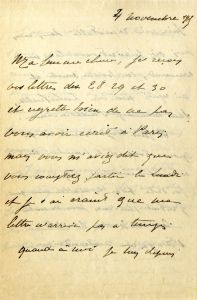 4 novembre
Ma bien chère, je reçois
vos lettres des 28 29 et 30
et regrette bien de ne pas
vous avoir écrit à Paris
mais vous m'aviez dit que
vous comptiez partir le lundi
et j'ai craint que ma
lettre n'arrivât pas à temps
quant à moi je suis depuis